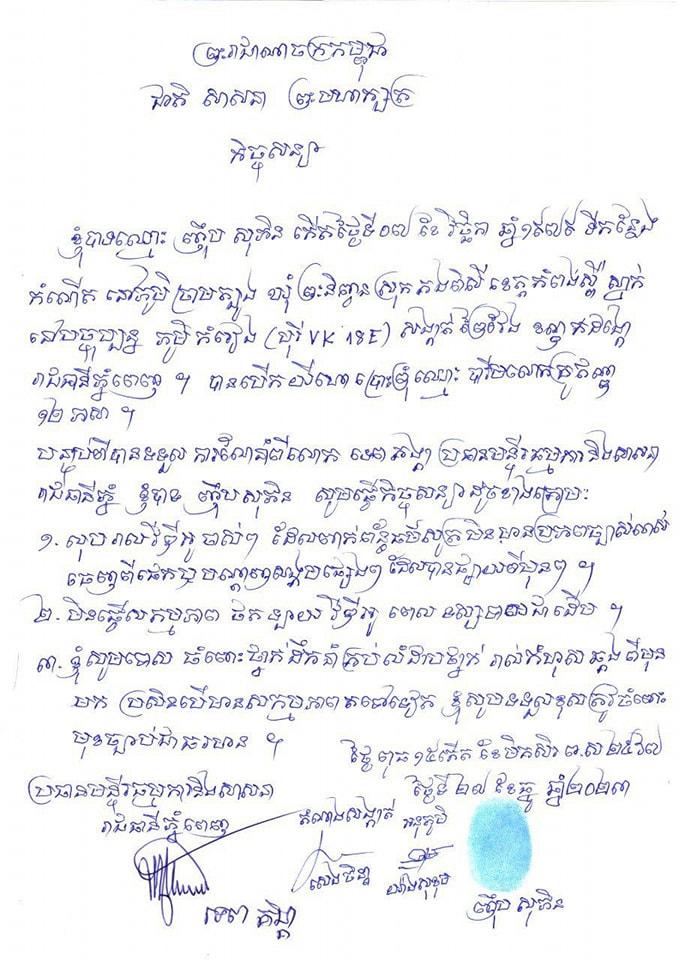 ព្រះរាជាណាចក្រកម្ពុជា
ជាតិ សាសនា ព្រះមហាក្សត្រ
កិច្ចសន្យា
ខ្ញុំបាទឈ្មោះ សុភិន កើតថ្ងៃទី០៧ ខែ វិច្ឆិកា ឆ្នាំ១៩៧៩ ទីកន្លែង
កំណើត នៅភូមិ ត្បូង ឃុំ ព្រះនិព្វាន ស្រុក គងពិសី ខេត្តកំពង់ស្ពឺ ស្នាក់
នៅបច្ចុប្បន្ន ភូមិ (បុរី VK 18E) សង្កាត់ ព្រៃវែង ខណ្ឌដង្កោ
រាជធានីភ្នំពេញ ។ បានបើក ឈ្មោះ បារមី
១២ ។
បន្ទាប់ពីបានទទួល ការណែនាំពីលោក ទេព ប្រធានមន្ទីរធម្មការនិងសាសនា
រាជធានីភ្នំ ខ្ញុំបាទ សុភិន សូមធ្វើកិច្ចសន្យាដូចខាងក្រោម:
១. លុប រាល់វីដីអូ ចាស់ៗ ដែល មិនមានប្រភពច្បាស់លាស់
ចេញពីផេកឬបណ្តាញសង្គមផ្សេងៗ ដែលបានផ្សាយពីមុនៗ ។
២. មិនធ្វើសកម្មភាព ថត ផ្សាយ វីដីអូ ជាដើម ។
៣. ខ្ញុំសូមទោស ចំពោះថ្នាក់ដឹកនាំគ្រប់លំដាប់ថ្នាក់ រាល់កំហុស ឆ្គង ពីមុន
មក ប្រសិនបើមានសកម្មភាពតទៅទៀត ខ្ញុំសូមទទួលខុសត្រូវចំពោះ
មុខច្បាប់ជាធរមាន ។
ថ្ងៃ ពុធ ១៥កើត ខែមិគសិរ ព.ស ២៥៦៧
ប្រធានមន្ទីរធម្មការនិងសាសនា
ថ្ងៃទី ២៧ ខែធ្នូ ឆ្នាំ២០២៣
រាជធានីភ្នំពេញ
តំណាងសង្កាត់ អនុភូមិ
ទេព
សុភិន